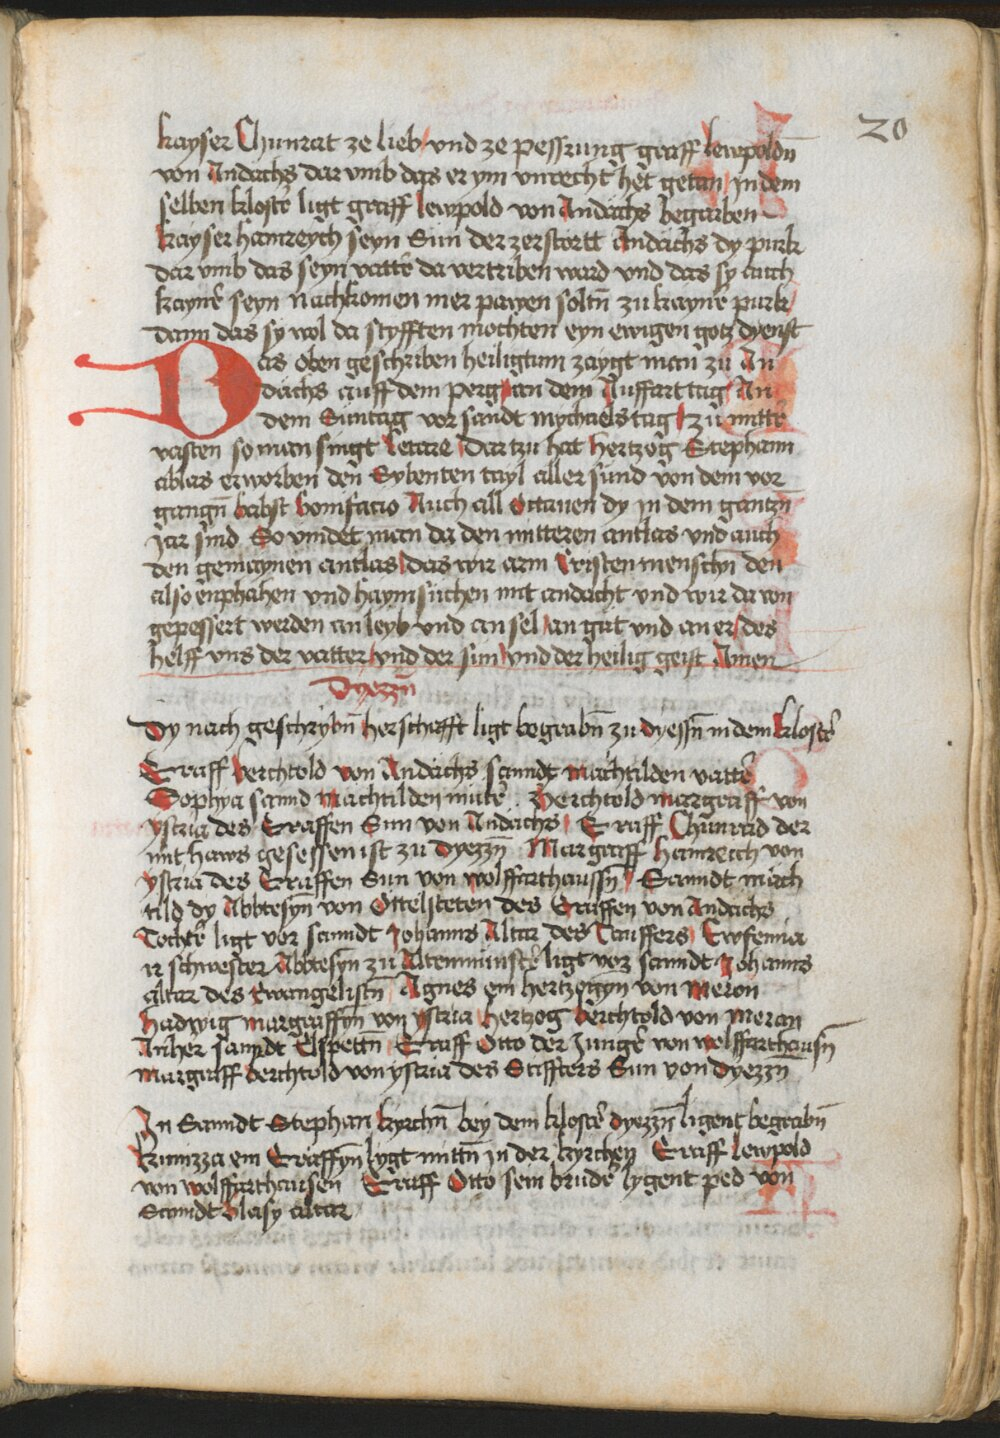 20
kayser Chunrat ze lieb und ze pessrung graff lewpoldn̄
von Andächs dar umb das er ym unrecht het getan / in dem
selben klostē ligt graff lewpold von Andächs begraben
kayser hainreych seyn Sun der zerstortt Andächs dy purk
dar umb das seyn vattē da vertriben ward und das sy auch
kaynē seyn nachkomen mer pawen soltn̄ zu kaynē purk /
dann das sy wol da styfften mochten eyn ewigen gotz dyenst
Das oben geschriben heiligtum zaygt man zu An
dächs auff dem perg / an dem Auffart tag / An
dem Suntag vor sandt mychaels tag / zu mittē
vasten so man singt letare / Dar tzu hat hertzog Stephann
ablas erworben den Sybenten tayl aller sund von dem vor
gangn̄ babst bonifacio Auch all Ottauen dy in dem gantzn̄
Jar sind So vindet man da den mitteren antlas und auch
den gemaynen antlas / das wir arm Cristen menschn̄ den
also enphahen und haym suchen mit andacht und wir da von
gepessert werden an leyb und an sel / an gut und an er / des
helff uns der vatter / und der sun / und der heilig geist Amen
Dyezzn̄
Dy nach geschrybn̄ herschafft ligt begrabn̄ zu dyessn̄ in dem klostē
Graff berchtold von Andächs sanndt machtilden vattē
Sophya sannd machtilden mutē . Berchtold margraff von
ystria des Graffen Sun von Andächs / Graff Chunrad der
mit haws gesessen ist zu dyezzn̄ Margraff hainreich von
ystria des Graffen Sun von wolffarthaussn̄ / Sanndt mäch
tild dy Abbtesyn̄ von Ottelsteten des Graffen von Andächs
Tochtē ligt vor sanndt Johanns Altar des Tauffers / Ewfemia
ir schwester Abbtesyn̄ zu Altenmünstē ligt vor sanndt Johanns
altar des Ewangelistn̄ / Agnes ein hertzogyn von meron
hadwig margraffyn von ystria / hertzog berchtold von meran
Anher sanndt Elspettn̄ / Graff Otto der Jungē von wolffarthausn̄
margraff berchtold von ystria des Stiffters Sun von dyezzn̄
In Sanndt Stephan kyrchn̄ bey dem klostē dyezzn̄ ligent begrabn̄
kunizza ein Graffyn̄ lygt mittn̄ in der kyrchen Graff lewpold
von wolffarthausen Graff Otto sein brudē lygent ped von
Sanndt blasy altar